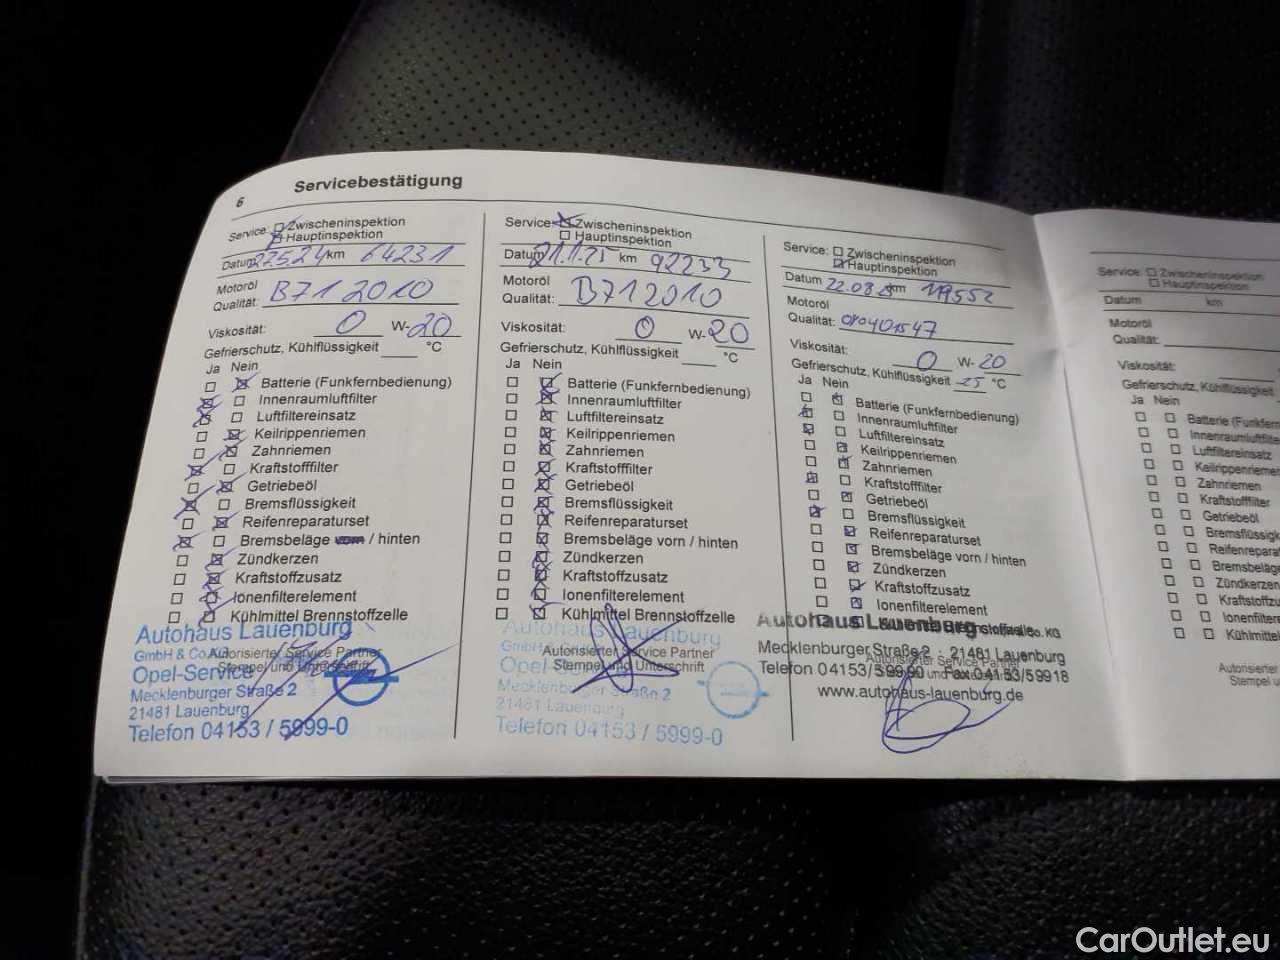 6
Servicebestätigung
Service: Zwischeninspektion
Hauptinspektion
Datum 27.5.24 km 64231
Motoröl
Qualität: B71 2010
Viskosität: 0 W-20
Gefrierschutz, Kühlflüssigkeit °C
Ja Nein
Batterie (Funkfernbedienung)
Innenraumluftfilter
Luftfiltereinsatz
Keilrippenriemen
Zahnriemen
Kraftstofffilter
Getriebeöl
Bremsflüssigkeit
Reifenreparaturset
Bremsbeläge vorn / hinten
Zündkerzen
Kraftstoffzusatz
Ionenfilterelement
Kühlmittel Brennstoffzelle
Autohaus Lauenburg
GmbH & Co.KG
Autorisierter Service Partner
Stempel und Unterschrift
Opel-Service
Mecklenburger Straße 2
21481 Lauenburg
Telefon 04153 / 5999-0
Service: Zwischeninspektion
Hauptinspektion
Datum 21.1.25 km 92233
Motoröl
Qualität: B71 2010
Viskosität: 0 W-20
Gefrierschutz, Kühlflüssigkeit °C
Ja Nein
Batterie (Funkfernbedienung)
Innenraumluftfilter
Luftfiltereinsatz
Keilrippenriemen
Zahnriemen
Kraftstofffilter
Getriebeöl
Bremsflüssigkeit
Reifenreparaturset
Bremsbeläge vorn / hinten
Zündkerzen
Kraftstoffzusatz
Ionenfilterelement
Kühlmittel Brennstoffzelle
Autohaus Lauenburg
Autorisierter Service Partner
Stempel und Unterschrift
Mecklenburger Straße 2
21481 Lauenburg
Telefon 04153 / 5999-0
Service: Zwischeninspektion
Hauptinspektion
Datum 22.08.25 km 119552
Motoröl
Qualität:
Viskosität: 0 W-20
Gefrierschutz, Kühlflüssigkeit -25 °C
Ja Nein
Batterie (Funkfernbedienung)
Innenraumluftfilter
Luftfiltereinsatz
Keilrippenriemen
Zahnriemen
Kraftstofffilter
Getriebeöl
Bremsflüssigkeit
Reifenreparaturset
Bremsbeläge vorn / hinten
Zündkerzen
Kraftstoffzusatz
Ionenfilterelement
Autohaus Lauenburg Co. KG
Mecklenburger Straße 2 · 21481 Lauenburg
Autorisierter Service Partner
Telefon 04153/59990 Fax 04153/59918
www.autohaus-lauenburg.de
Service: Zwischeninspektion
Hauptinspektion
Datum km
Motoröl
Qualität:
Viskosität:
Gefrierschutz, Kühlflüssigkeit
Ja Nein
Batterie
Innenraumluftfilter
Luftfiltereinsatz
Keilrippenriemen
Zahnriemen
Kraftstofffilter
Getriebeöl
Zündkerzen
Autorisierter
Stempel
CarOutlet.eu